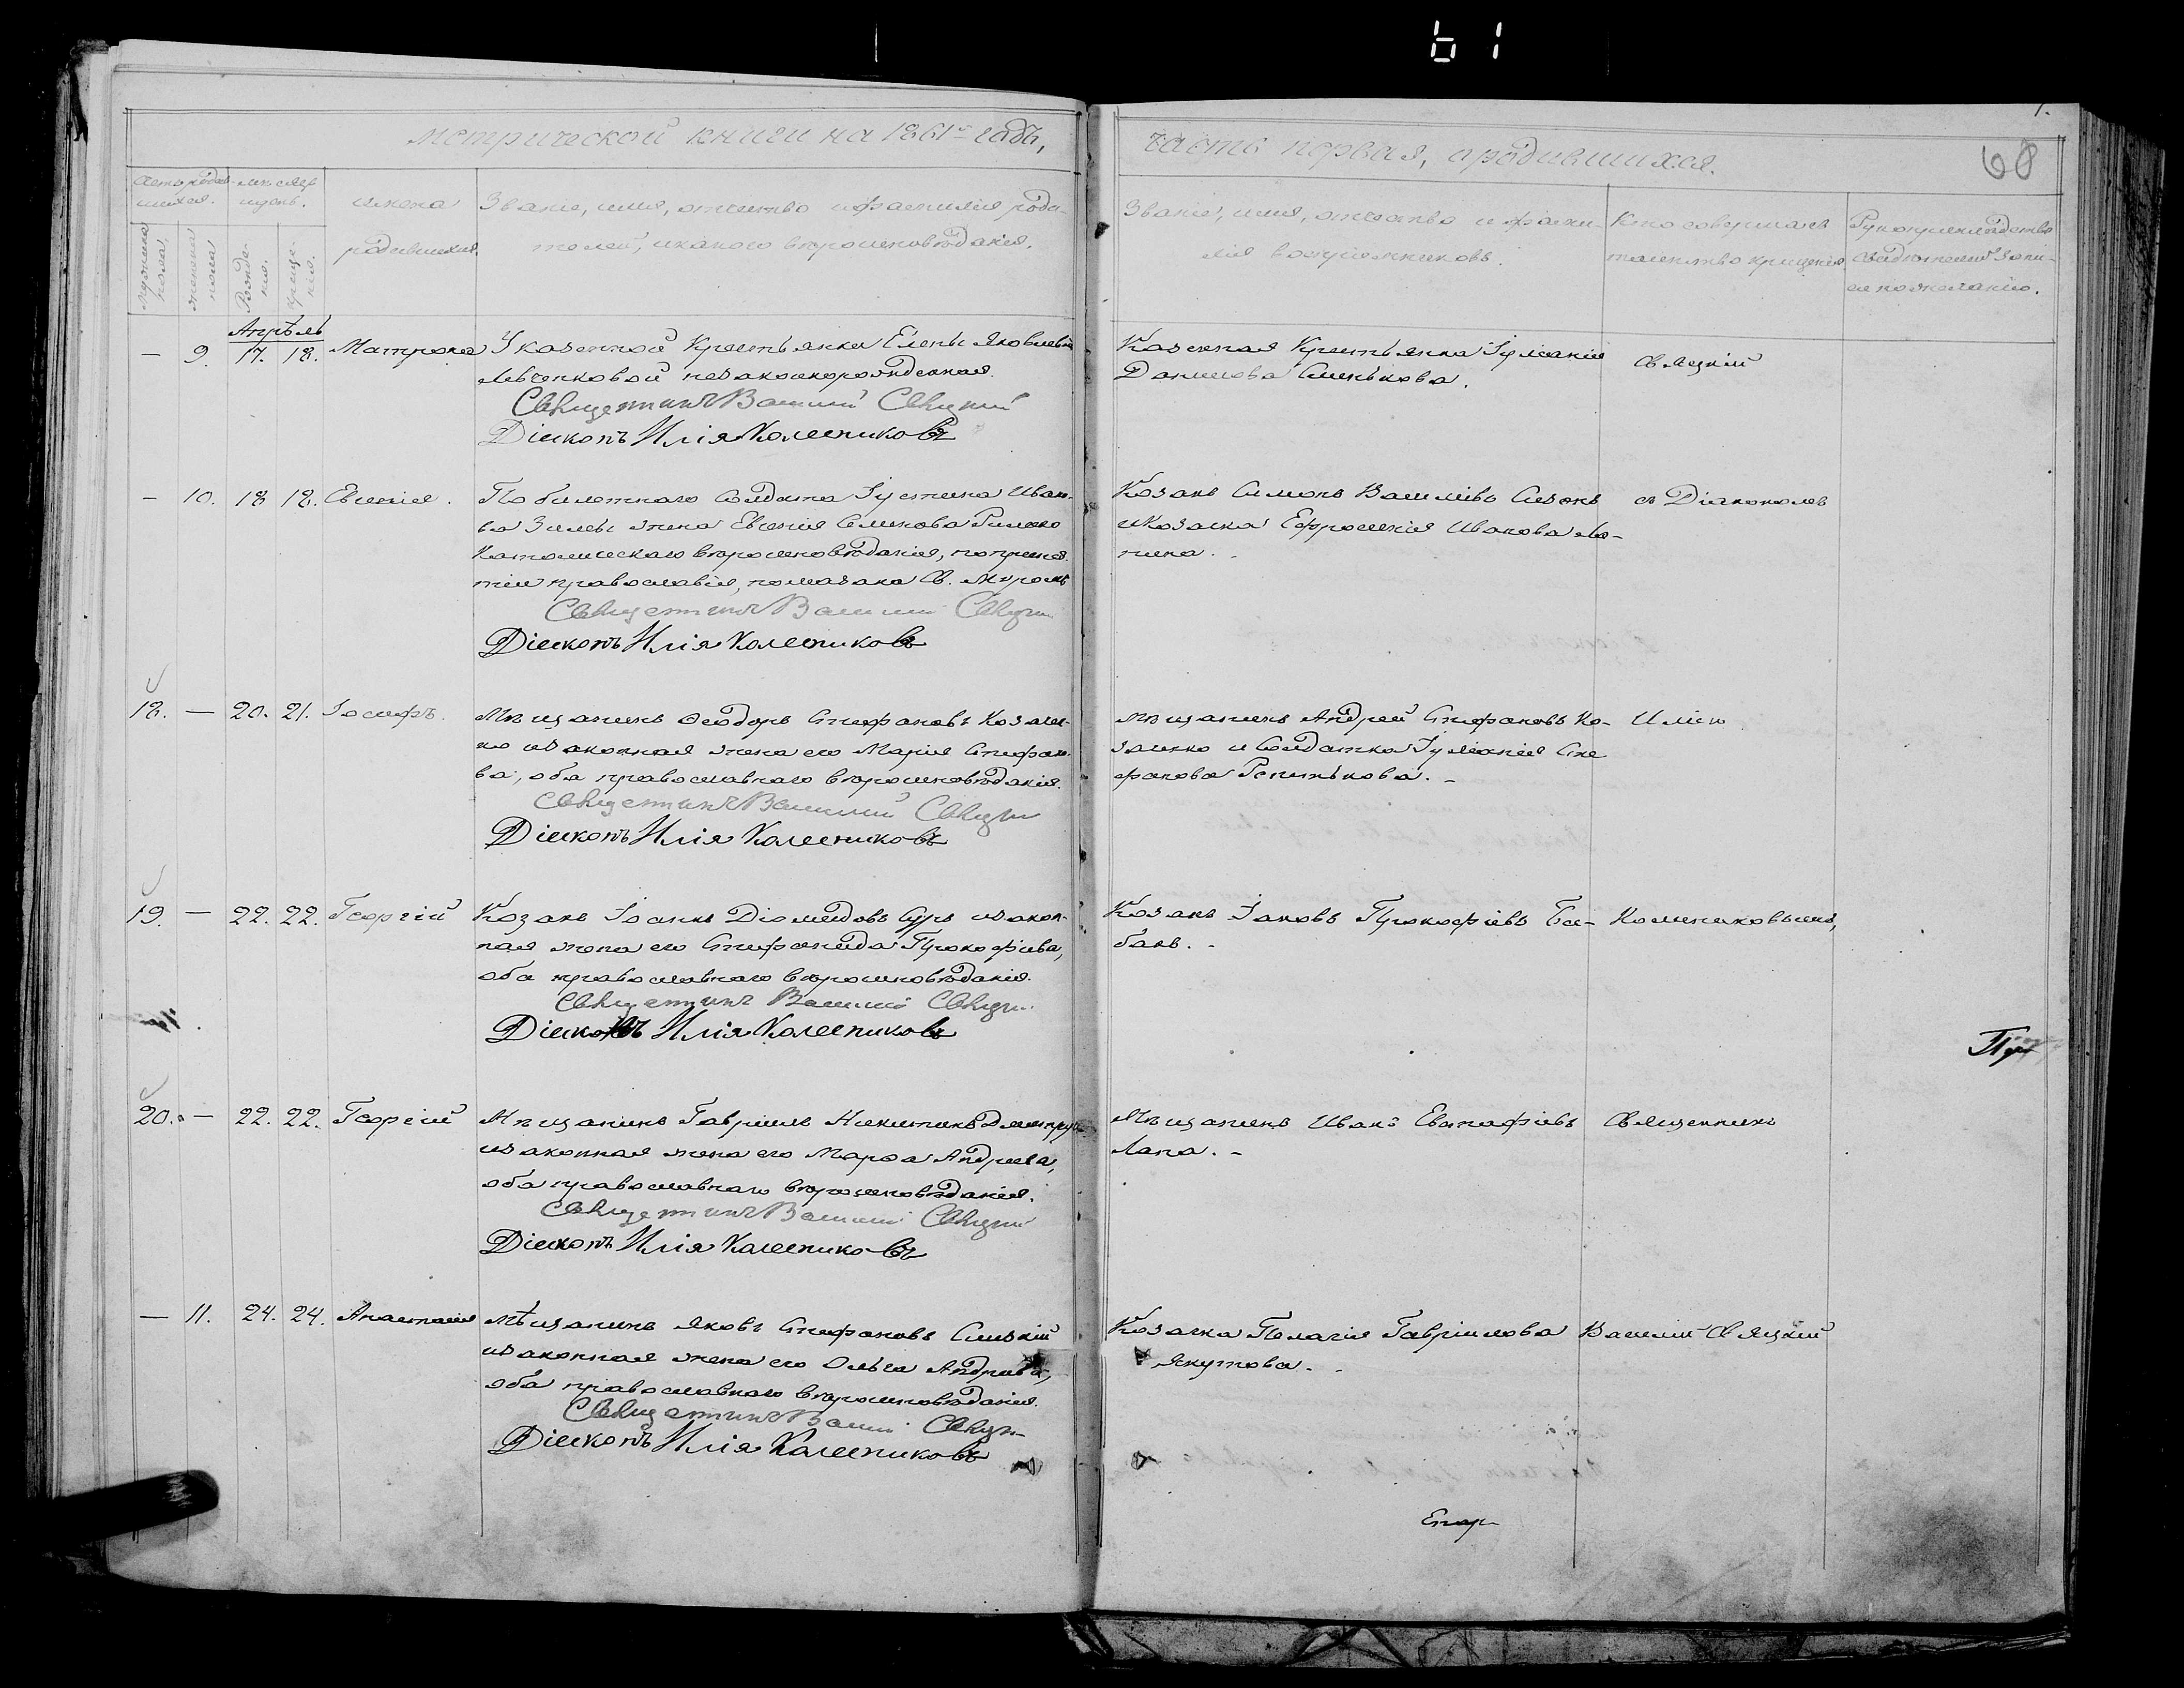 61
метрической книги на 1861й годъ,
часть первая, о родившихся.
68
Счетъ родив-
шихся.
мѣсяцъ
и день.
имена
родившихся.
Званіе, имя, отчество и фамилія роди-
телей, и какого вѣроисповѣданія.
Званіе, имя, отчество и фами-
лія воспріемниковъ.
Кто совершалъ
таинство крещенія
Рукоприкладство
свидѣтелей запи-
си по желанію.
мужеска
пола,
женска
пола
Рожде-
нія.
креще-
нія.
Апрѣль
— 9. 17. 18. Матрона
У казенной Крестьянки Елены Яковлевой
Левченковой незаконорожденная.
Священникъ Василій Свѣцкій
Діаконъ Илія Колесниковъ
Казенная Крестьянка Іуліанія
Данилова Синькова.
Свяцкій
— 10. 18 18. Евгенія.
По билетнаго Солдата Іустина Ива-
ва Зилевы жена Евгенія Семенова Римско
Католическаго вѣроисповѣданія, по приня-
тіи православія, помазана Св. Мѵромъ
Священникъ Василій Свѣцкій
Діаконъ Илія Колесниковъ
Козакъ Симонъ Васильевъ Сизонъ
и Козачка Ефросинія Иванова Ло-
пина. -
съ Діакономъ
18. — 20. 21. Іосифъ.
Мѣщанинъ Ѳеодоръ Стефановъ Козачен-
ко и законная жена его Марія Стефано-
ва, оба православнаго вѣроисповѣданія.
Священникъ Василій Свѣцкій
Діаконъ Илія Колесниковъ
Мѣщанинъ Андрей Стефановъ Ко-
заченко и Солдатка Іуліанія Сте
фанова Репенькова. -
Иліею
19. — 22. 22. Георгій
Козакъ Іоаннъ Діомидовъ Суръ и закон-
ная жена его Стефанида Прокофіева,
оба православнаго вѣроисповѣданія.
Священникъ Василій Свѣцкій
Діаконъ Илія Колесниковъ
Козакъ Іаковъ Прокофіевъ Ба-
бакъ. -
Колесниковымъ,
20. — 22. 22. Георгій
Мѣщанинъ Гавріилъ Никитинъ
и законная жена его Марѳа Андреева,
оба православнаго вѣроисповѣданія.
Священникъ Василій Свѣцкій
Діаконъ Илія Колесниковъ
Мѣщанинъ Иванъ Евстафіевъ
Лапа. -
Священникъ
— 11. 24. 24. Анастасія
Мѣщанинъ Яковъ Стефановъ Слизкій
и законная жена его Ольга Андреева,
оба православнаго вѣроисповѣданія.
Священникъ Василій Свѣцкій
Діаконъ Илія Колесниковъ
Козачка Пелагія Гавріилова
Якутова. -
Василій Свяцкій